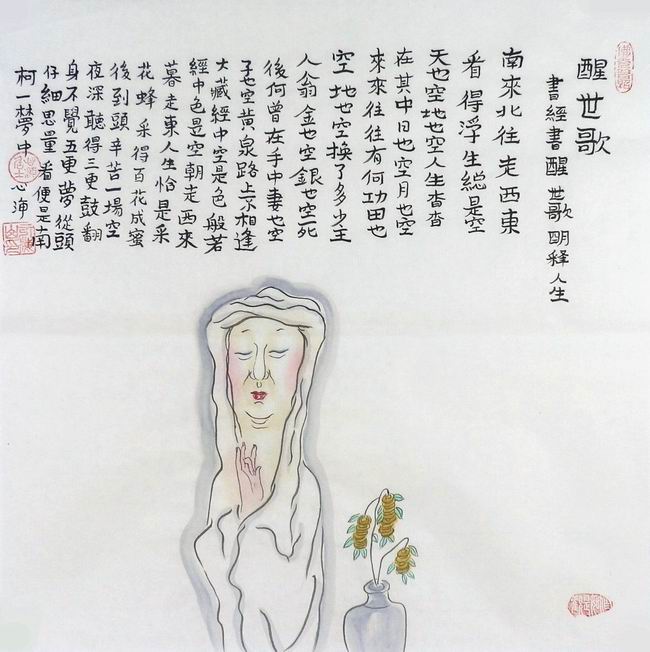 醒世歌
書經書醒世歌明釋人生
南來北往走西東
看得浮生総是空
天也空地也空人生杳杳
在其中日也空月也空
來來往往有何功田也
空地也空換了多少主
人翁金也空銀也空死
後何曾在手中妻也空
子也空黄泉路上不相逢
大藏經中空是色般若
經中色是空朝走西來
暮走東人生恰是采
花蜂采得百花成蜜
後到頭辛苦一場空
夜深聽得三更鼓翻
身不覺五更夢從頭
仔細思量看便是南
柯一夢中